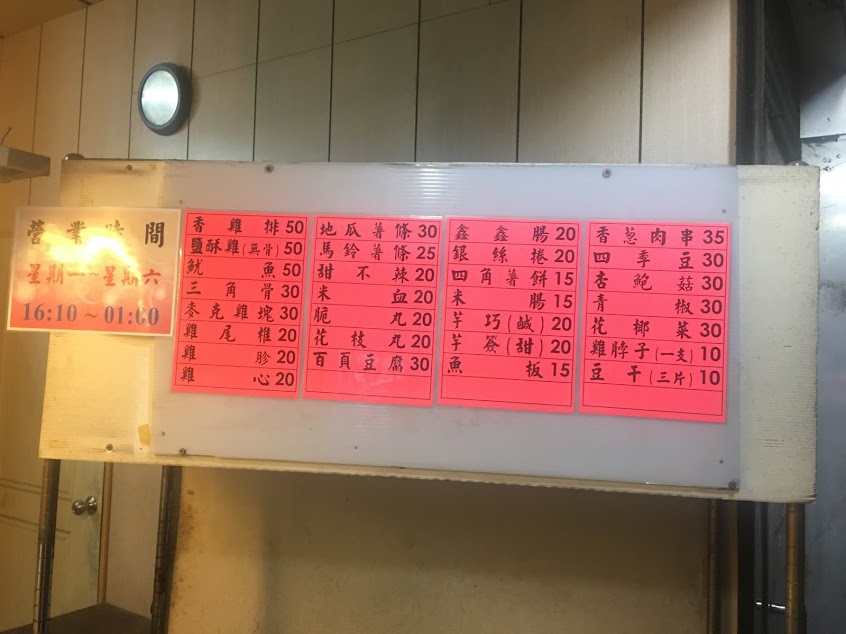 營業時間
星期一~星期六
16:10~01:00
香雞排50
鹽酥雞(無骨)50
魷魚50
三角骨30
麥克雞塊30
雞尾椎20
雞胗20
雞心20
地瓜薯條30
馬鈴薯條25
甜不辣20
米血20
脆丸20
花枝丸20
百頁豆腐30
鑫鑫腸20
銀絲捲20
四角薯餅15
米腸15
芋巧(鹹)20
芋簽(甜)20
魚板15
香蔥肉串35
四季豆30
杏鮑菇30
青椒30
花椰菜30
雞脖子(一支)10
豆干(三片)10